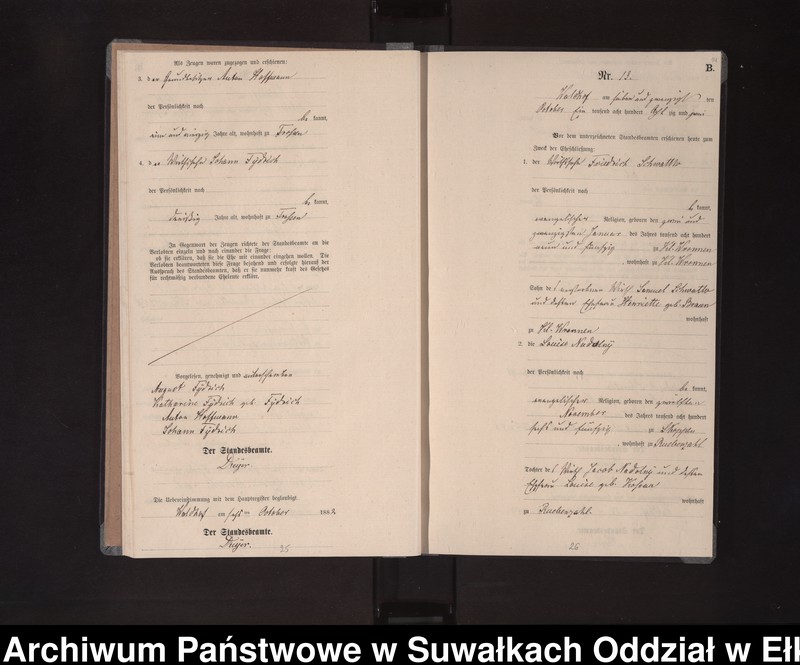 Als Zeugen waren zugezogen und erschienen:
3. der Grundbesitzer Anton Hoffmann
der Persönlichkeit nach
be kannt,
ein und vierzig Jahre alt, wohnhaft zu Torfen
4. der Wirthssohn Johann Tydrich
der Persönlichkeit nach
be kannt,
dreißig Jahre alt, wohnhaft zu Torfen
In Gegenwart der Zeugen richtete der Standesbeamte an die
Verlobten einzeln und nach einander die Frage:
ob sie erklären, daß sie die Ehe mit einander eingehen wollen. Die
Verlobten beantworteten diese Frage bejahend und erfolgte hierauf der
Ausspruch des Standesbeamten, daß er sie nunmehr kraft des Gesetzes
für rechtmäßig verbundene Eheleute erkläre.
Vorgelesen, genehmigt und unterschrieben
August Tydrich
Katharine Tydrich geb. Tydrich
Anton Hoffmann
Johann Tydrich
Der Standesbeamte.
Die Uebereinstimmung mit dem Hauptregister beglaubigt.
Waldhof am October 1882
Der Standesbeamte.
25
B.
Nr. 13.
Waldhof am sieben und zwanzigsten
October Ein tausend acht hundert acht zig und zwei
Vor dem unterzeichneten Standesbeamten erschienen heute zum
Zweck der Eheschließung:
1. der Wirthssohn Friedrich Schwattlo
der Persönlichkeit nach
be kannt,
evangelischer Religion, geboren den zwei und
zwanzigsten Januar des Jahres tausend acht hundert
neun und fünfzig zu Kl. Wronnen
, wohnhaft zu Kl. Wronnen
Sohn des verstorbenen Wirth Samuel Schwattlo
und dessen Ehefrau Henriette geb. Braun
wohnhaft
zu Kl. Wronnen
2. die Louise Nadolny
der Persönlichkeit nach
be kannt,
evangelischer Religion, geboren den zwölften
November des Jahres tausend acht hundert
sechs und fünfzig zu Skoppen
, wohnhaft zu Ruebenzahl
Tochter des Wirth Jacob Nadolny und dessen
Ehefrau Louise geb. Kossan
wohnhaft
zu Ruebenzahl.
26
Archiwum Państwowe w Suwałkach Oddział w Ełk